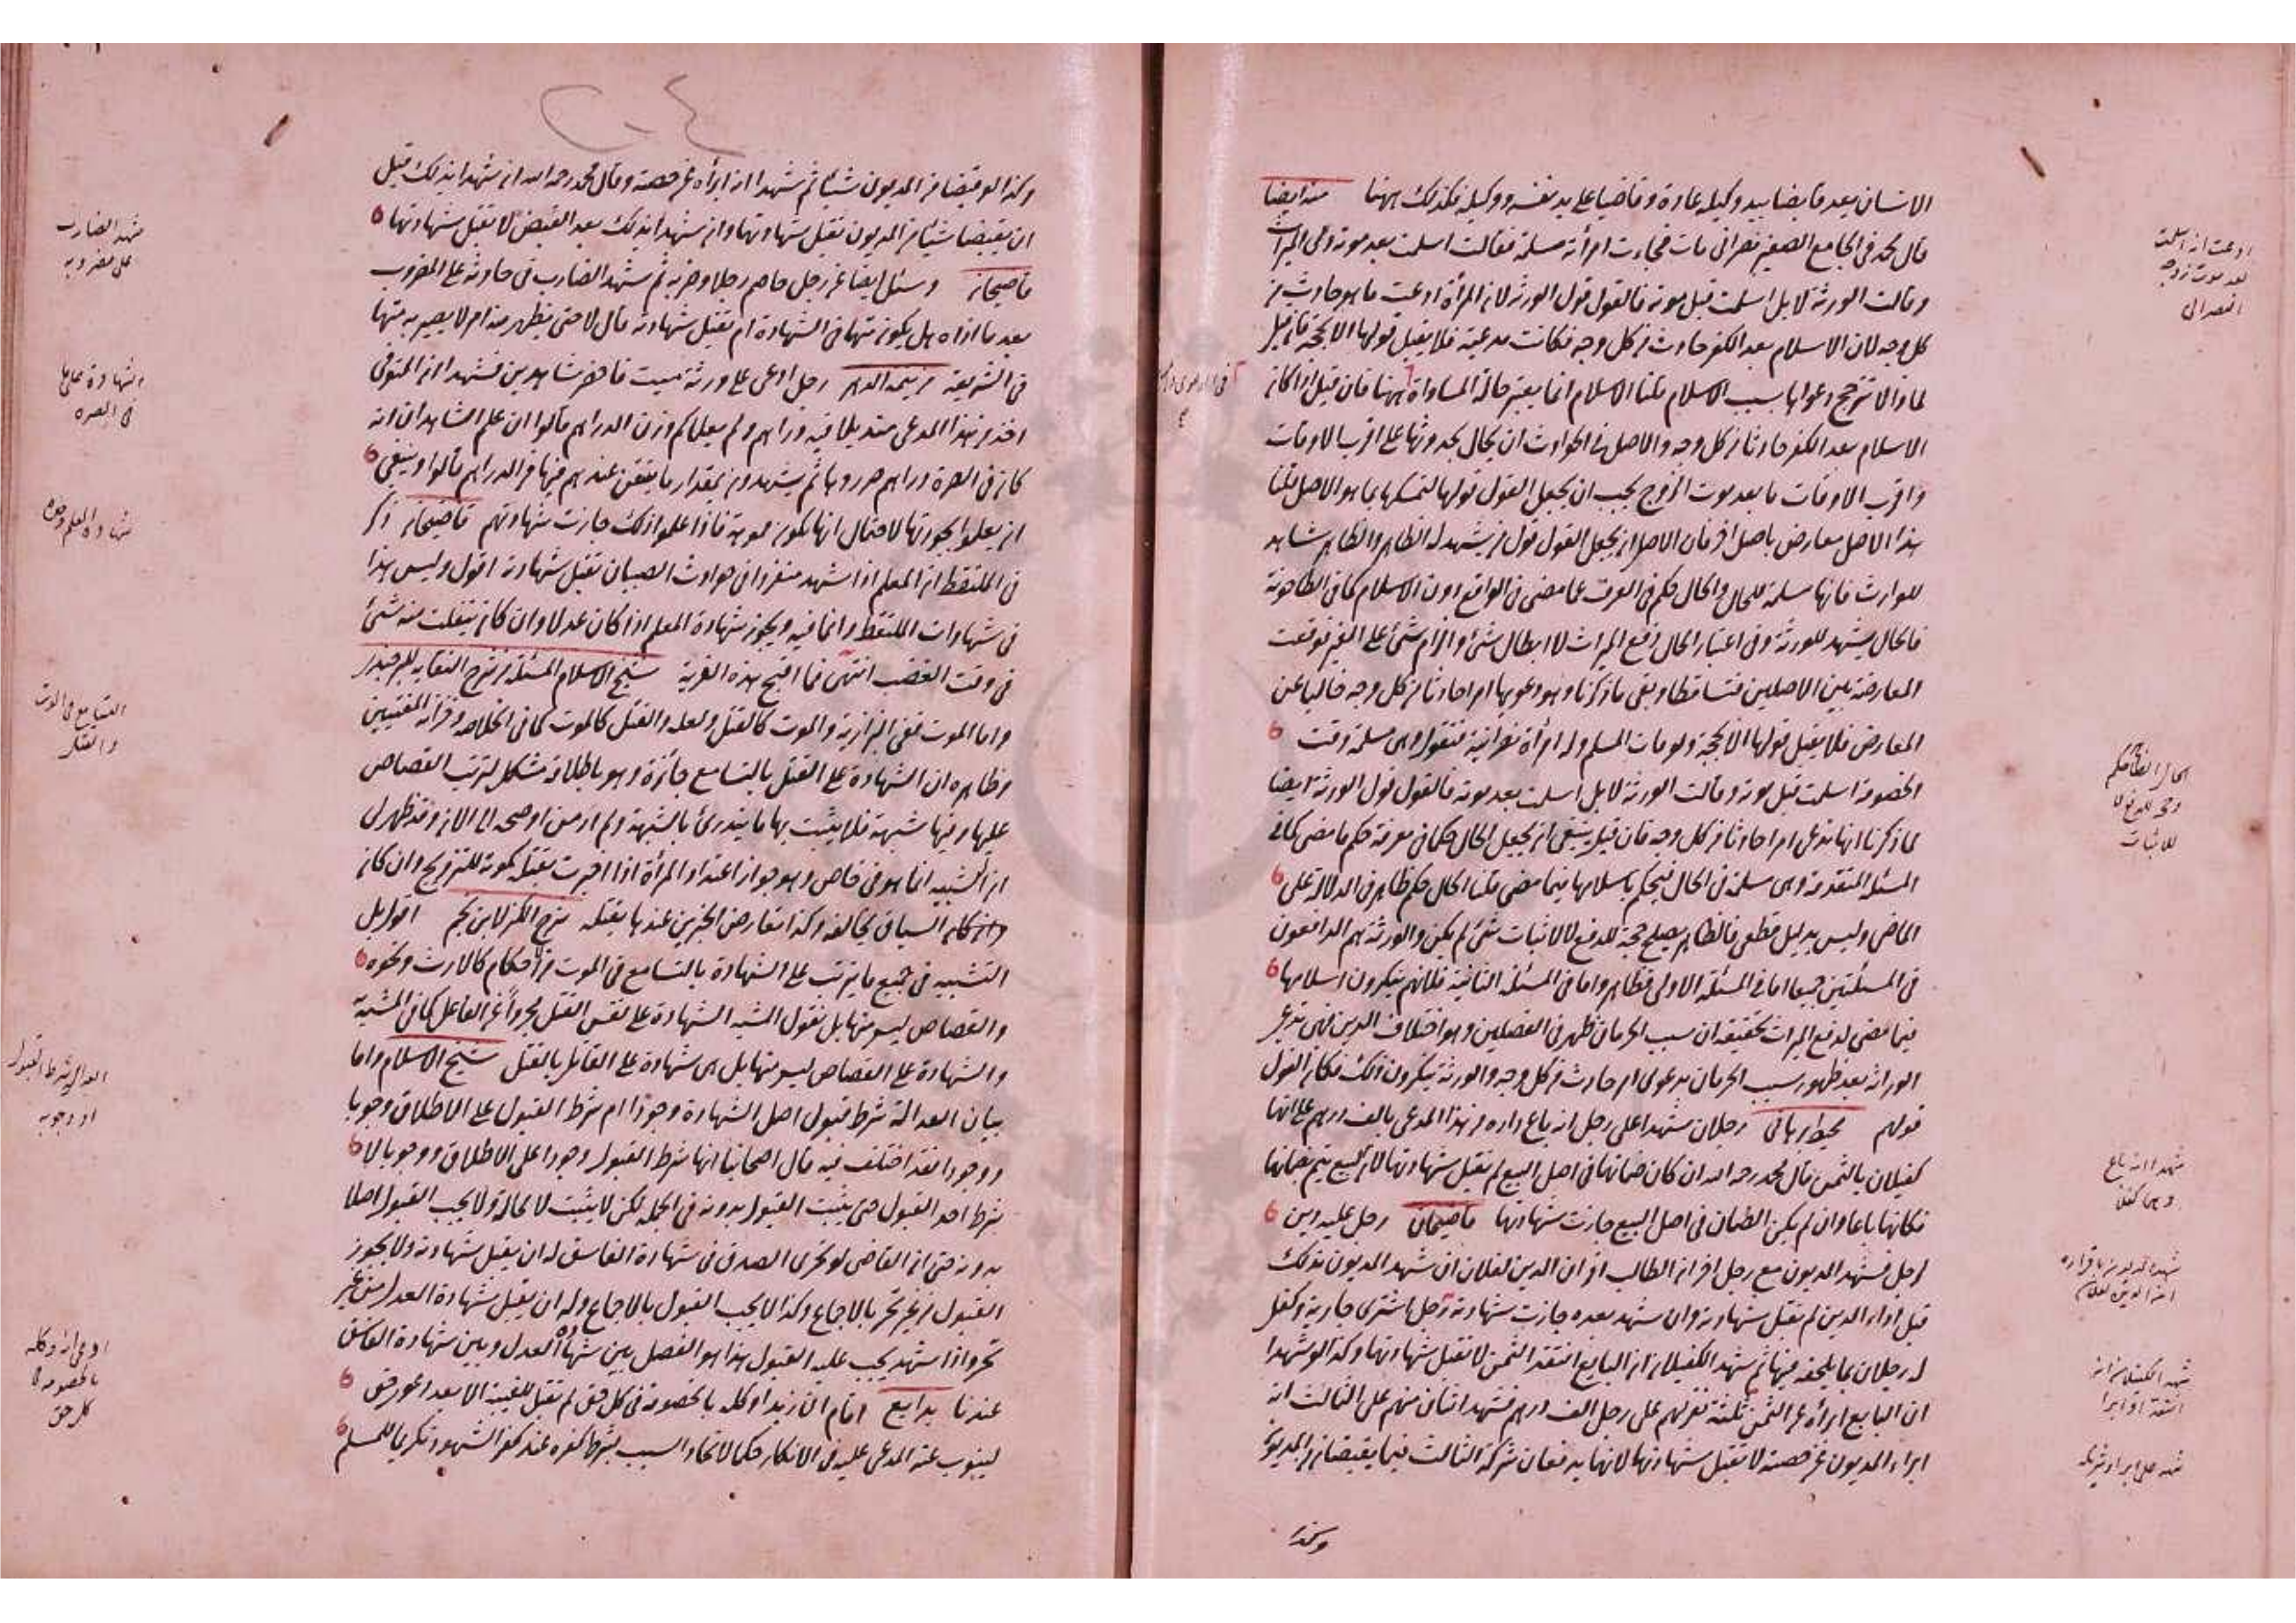 الانسان يعد قابضا بيد وكيله عادة وقاضيا على يد نفسه ووكيله فكذلك ههنا منه ايضا
قال محمد في الجامع الصغير نصراني مات فجاءت امرأته مسلمة فقالت اسلمت بعد موته ولي الميراث
وقالت الورثة لا بل اسلمت قبل موته فالقول قول الورثة لان المرأة ادعت ما هو حادث من
كل وجه لان الاسلام بعد الكفر حادث من كل وجه فكانت مدعية فلا يقبل قولها الا بحجة فان قيل
لماذا لا ترجح دعواها بسبب الاسلام قلنا الاسلام انما يعتبر حالة المساواة ههنا فان قيل اذا كان
الاسلام بعد الكفر حادثا من كل وجه والاصل في الحوادث ان يحال بحدوثها على اقرب الاوقات
واقرب الاوقات ما بعد موت الزوج يجب ان يجعل القول قولها لتمسكها بما هو الاصل قلنا
هذا الاصل معارض باصل اخر فان الاصل ان يجعل القول قول من يشهد له الظاهر والظاهر شاهد
للوارث فانها مسلمة للحال والحال حكم في العرف عما مضى في الواقع دون الاسلام كما في الطاحونة
فالحال يشهد للورثة وفي اعتبار الحال دفع الميراث لا ابطال شئ او الزام شئ على الغير فوقعت
المعارضة بين الاصلين فتساقطا وبقي ما ذكرنا وهو دعويها امرا حادثا من كل وجه خاليا عن
المعارض فلا يقبل قولها الا بحجة ولو مات المسلم وله امرأة نصرانية فتقول وهي مسلمة وقت
الخصومة اسلمت قبل موته وقالت الورثة لا بل اسلمت بعد موته فالقول قول الورثة ايضا
لما ذكرنا انها تدعي امرا حادثا من كل وجه فان قيل ينبغي ان يجعل الحال حكما في معرفة حكم ما مضى كما في
المسئلة المتقدمة وهي مسلمة في الحال فيحكم باسلامها فيما مضى قلنا الحال حكم ظاهر في الدلالة على
الماضي وليس بدليل قطعي فالظاهر يصلح حجة للدفع لا لاثبات شئ لم يكن والورثة هم الدافعون
في المسئلتين جميعا اما في المسئلة الاولى فظاهر واما في المسئلة الثانية فلانهم ينكرون اسلامها
فيما مضى لدفع الميراث تحقيقه ان سبب الحرمان ظهر في الفصلين وهو اختلاف الدين فهي تدعي
الوراثة بعد ظهور سبب الحرمان بدعوى امر حادث من كل وجه والورثة ينكرون ذلك فكان القول
قولهم محيط برهاني رجلان شهدا على رجل انه باع داره من هذا المدعي بالف درهم على انهما
كفيلان بالثمن قال محمد رحمه الله ان كان ضمانهما في اصل البيع لم تقبل شهادتهما لان البيع يتم بضمانهما
فكانهما باعا وان لم يكن الضمان في اصل البيع جازت شهادتهما قاضيخان رجل عليه دين
لرجل فشهد المديون مع رجل اخر ان الطالب اقر ان الدين لفلان ان شهد المديون بذلك
قبل اداء الدين لم تقبل شهادته وان شهد بعده جازت شهادته رجل اشترى جارية وكفل
له رجلان بما يلحقه فيها ثم شهد الكفيلان ان البايع انتقد الثمن لا تقبل شهادتهما وكذا لو شهدا
ان البايع ابرأه عن الثمن ثلثة نفر لهم على رجل الف درهم فشهد اثنان منهم على الثالث انه
ابراء المديون عن حصته لا تقبل شهادتهما لانهما يدفعان شركة الثالث فيما يقبضان من المديون
وكذا
ادعت انها اسلمت
بعد موت زوجه
النصراني
الحال الظاهر حكم
وحجة للدفع لا
للاثبات
شهدا انه باع
وهما كفلا
شهد المديون باقراره
ان الدين لفلان
شهد الكفيلان انه
انتقد او ابرا
شهد على ابراء شريكه
وكذا لو قبضا من المديون شيئا ثم شهدا انه ابرأه عن حصته وقال محمد رحمه الله ان شهدا بذلك قبل
ان يقبضا شيئا من المديون تقبل شهادتهما وان شهدا بذلك بعد القبض لا تقبل شهادتهما
قاضيخان وسئل ايضا عن رجل خاصم رجلا وضربه ثم شهد الضارب في حادثة على المضروب
بعد ما اذاه هل يكون متهما في الشهادة ام تقبل شهادته قال لا حتى يظهر منه امر لا يصير به متهما
في الشريعة من يتيمة الدهر رجل ادعى على ورثة ميت فاحضر شاهدين فشهدا ان المتوفى
اخذ من هذا المدعي منديلا فيه دراهم ولم يعلما كم وزن الدراهم قالوا ان علم الشاهدان انه
كان في الصرة دراهم حزروها ثم يشهدون بمقدار ما يتيقن عندهم فيها من الدراهم قالوا وينبغي
ان يعلموا بجودتها لاحتمال انها تكون مموهة فاذا علموا ذلك جازت شهادتهم قاضيخان ذكر
في الملتقط ان المعلم اذا شهد منفردا في حوادث الصبيان تقبل شهادته اقول وليس هذا
في شهادات الملتقط وانما فيه ويجوز شهادة المعلم اذا كان عدلا وان كان ينفلت منه شئ
في وقت الغضب انتهى فما اقبح هذه الفرية شيخ الاسلام المسئلة من شرح النقاية للبرجندي
واما الموت ففي البزازية والموت كالقتل ولعله والقتل كالموت كما في الخلاصة وخزانة المفتيين
وظاهره ان الشهادة على القتل بالتسامع جائزة وهو باطلاقه مشكل لترتب القصاص
عليها وفيها شبهة فلا يثبت بها ما يندرئ بالشبهة ولم ار من اوضحه الى الان وقد ظهر لي
ان التشبيه انما هو في خاص وهو جواز اعتداد المرأة اذا اخبرت بقتله كموته للتزويج وان كان
السياق يخالفه وكذا تعارض الخبرين عندها بقتله شرح الكنز لابن نجيم اقول بل
التشبيه في جميع ما يترتب على الشهادة بالتسامع في الموت من الاحكام كالارث ونحوه
والقصاص ليس منها بل نقول المشبه الشهادة على نفس القتل مجردا عن الفاعل كما في المشبه به
والشهادة على القصاص ليس منها بل هي شهادة على القاتل بالقتل شيخ الاسلام واما
بيان العدالة شرط قبول اصل الشهادة وجودا ام شرط القبول على الاطلاق وجوبا
ووجودا فقد اختلف فيه قال اصحابنا انها شرط القبول وجودا على الاطلاق ووجوبا لا
شرط اصل القبول حتى يثبت القبول بدونه في الجملة لكن لا يثبت لا محالة ولا يجب القبول اصلا
بدونه حتى ان القاضي لو تحرى الصدق في شهادة الفاسق له ان يقبل شهادته ولا يجوز
القبول من غير تحر بالاجماع وكذا لا يجب القبول بالاجماع وله ان يقبل شهادة العدل من غير
تحر واذا شهد يجب عليه القبول هذا هو الفصل بين شهادة العدل وبين شهادة الفاسق
عندنا بدايع اقام ان زيدا وكله بالخصومة في كل حق لم تقبل للغيبة الا بعد دعوى حق
لينوب عنه المدعى عليه في الانكار حكما لاتحاد السبب بشرط كفره عند كفر الشهود تكريما للمسلم
شهد الضارب
على مضروبه
الشهادة على ما
في الصره
شهادة المعلم وجوه
التسامع في الموت
والقتل
العدالة شرط القبول
او وجوبه
ادعى انه وكله
بالخصومة في
كل حق